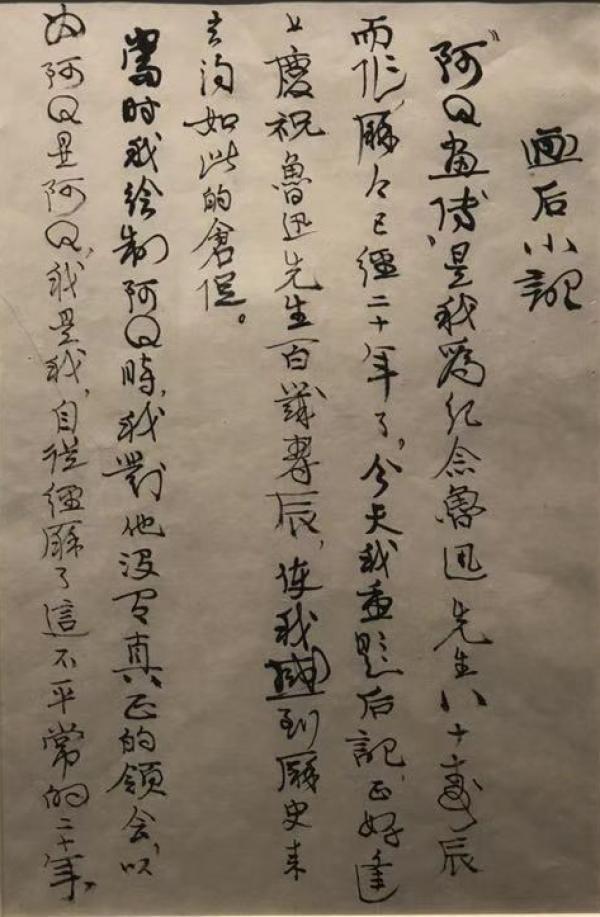 画后小記
"阿Q画傳"是我爲纪念魯迅先生八十壽辰
而作,歷々已經二十年了,今天我重题后記,正好逢
上慶祝魯迅先生百歲壽辰,使我感到歷史来
去得如此的倉促。
當时我绘制阿Q時,我對他没有真正的領会,以
为阿Q是阿Q,我是我,自從經歷了這不平常的二十年,